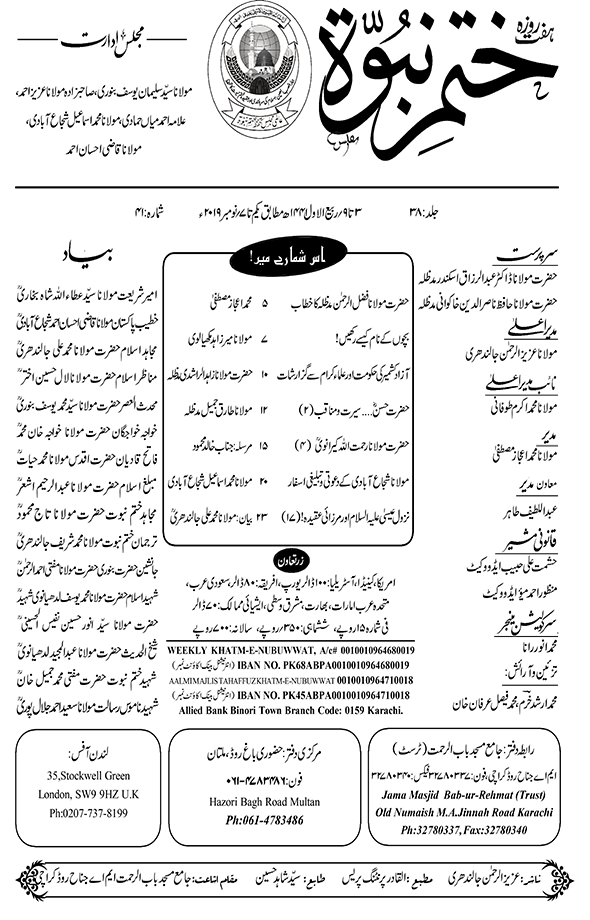 ہفت روزہ
ختم نبوّة
مجلس ادارت
مولانا سیّد سلیمان یوسف بنوری، صاحبزادہ مولانا عزیز احمد،
علامہ احمد میاں حمادی، مولانا محمد اسماعیل شجاع آبادی،
مولانا قاضی احسان احمد
جلد: ۳۸
۳ تا ۹ / ربیع الاول ۱۴۴۱ھ مطابق یکم تا ۷ / نومبر ۲۰۱۹ء
شمارہ: ۴۱
سرپرست
حضرت مولانا ڈاکٹر عبدالرزاق اسکندر مدظلہ
حضرت مولانا حافظ ناصر الدین خاکوانی مدظلہ
مدیر اعلیٰ
مولانا عزیز الرحمٰن جالندھری
نائب مدیر اعلیٰ
مولانا محمد اکرم طوفانی
مدیر
مولانا محمد اعجاز مصطفیٰ
معاون مدیر
عبداللطیف طاہر
قانونی مشیر
حشمت علی حبیب ایڈووکیٹ
منظور احمد میؤ ایڈووکیٹ
سرکولیشن منیجر
محمد انور رانا
تزئین و آرائش:
محمد ارشد خرم، محمد فیصل عرفان خان
اس شمارے میں!
حضرت مولانا فضل الرحمٰن مدظلہ کا خطاب ۵ محمد اعجاز مصطفیٰ
بچوں کے نام کیسے رکھیں! ۷ مولانا میر زاہد مکھیالوی
آزاد کشمیر کی حکومت اور علماء کرام سے گزارشات ۱۰ حضرت مولانا زاہد الراشدی مدظلہ
حضرت حسنؓ .... سیرت و مناقب (۲) ۱۲ مولانا طارق جمیل مدظلہ
حضرت مولانا رحمت اللہ کیرانویؒ (۴) ۱۵ مرسلہ: جناب خالد محمود
مولانا شجاع آبادی کے دعوتی و تبلیغی اسفار ۲۰ مولانا محمد اسماعیل شجاع آبادی
نزول عیسیٰ علیہ السلام اور مرزائی عقیدہ! (۱۷) ۲۳ بیان: مولانا محمد علی جالندھریؒ
زر تعاون
امریکا، کینیڈا، آسٹریلیا: ۱۰۰ ڈالر یورپ، افریقہ: ۸۰ ڈالر، سعودی عرب،
متحدہ عرب امارات، بھارت، مشرق وسطیٰ، ایشیائی ممالک: ۷۰ ڈالر
فی شمارہ ۱۵ روپے، ششماہی: ۳۵۰ روپے، سالانہ: ۷۰۰ روپے
WEEKLY KHATM-E-NUBUWWAT, A/c# 0010010964680019
IBAN NO. PK68ABPA0010010964680019 (انٹرنیشنل بینک اکاؤنٹ نمبر)
AALMIMAJLISTAHAFFUZKHATM-E-NUBUWWAT 0010010964710018
IBAN NO. PK45ABPA0010010964710018 (انٹرنیشنل بینک اکاؤنٹ نمبر)
Allied Bank Binori Town Branch Code: 0159 Karachi.
بیاد
امیر شریعت مولانا سیّد عطاء اللہ شاہ بخاریؒ
خطیب پاکستان مولانا قاضی احسان احمد شجاع آبادیؒ
مجاہد اسلام حضرت مولانا محمد علی جالندھریؒ
مناظر اسلام حضرت مولانا لال حسین اخترؒ
محدث العصر حضرت مولانا سیّد محمد یوسف بنوریؒ
خواجہ خواجگان حضرت مولانا خواجہ خان محمدؒ
فاتح قادیان حضرت اقدس مولانا محمد حیاتؒ
مبلغ اسلام حضرت مولانا عبدالرحیم اشعرؒ
مجاہد ختم نبوت حضرت مولانا تاج محمودؒ
ترجمان ختم نبوت حضرت مولانا محمد شریف جالندھریؒ
جانشین حضرت بنوری حضرت مولانا مفتی احمد الرحمٰنؒ
شہید اسلام حضرت مولانا محمد یوسف لدھیانوی شہیدؒ
حضرت مولانا سیّد انور حسین نفیس الحسینیؒ
شیخ الحدیث حضرت مولانا عبدالمجید لدھیانویؒ
شہید ختم نبوت حضرت مولانا مفتی محمد جمیل خانؒ
شہید ناموس رسالت مولانا سعید احمد جلال پوریؒ
رابطہ دفتر: جامع مسجد باب الرحمت (ٹرسٹ)
ایم اے جناح روڈ کراچی، فون: ۳۲۷۸۰۳۳۷ فیکس: ۳۲۷۸۰۳۴۰
Jama Masjid Bab-ur-Rehmat (Trust)
Old Numaish M.A.Jinnah Road Karachi
Ph:32780337,Fax:32780340
مرکزی دفتر: حضوری باغ روڈ، ملتان
فون: ۰۶۱-۴۷۸۳۴۸۶
Hazori Bagh Road Multan
Ph:061-4783486
لندن آفس:
35,Stockwell Green
London, SW9 9HZ U.K
Ph:0207-737-8199
ناشر: عزیز الرحمٰن جالندھری مطبع: القادر پرنٹنگ پریس طابع: سیّد شاہد حسین مقام اشاعت: جامع مسجد باب الرحمت ایم اے جناح روڈ کراچی